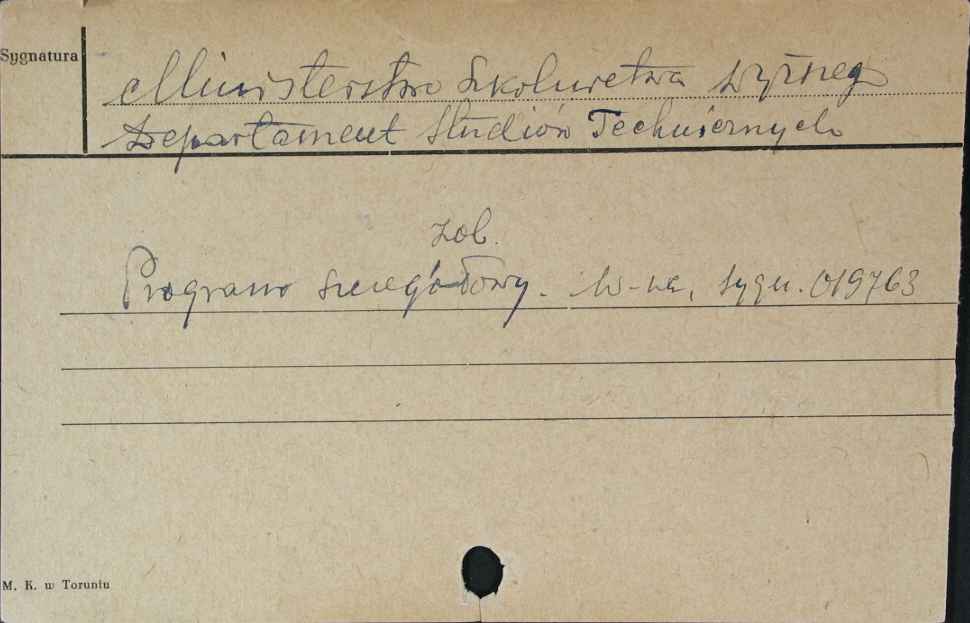 Sygnatura
Ministerstwo Szkolnictwa Wyższego
Departament Studiów Technicznych
zob.
Program szczegółowy. W-wa, sygn. 019763
M. K. w Toruniu